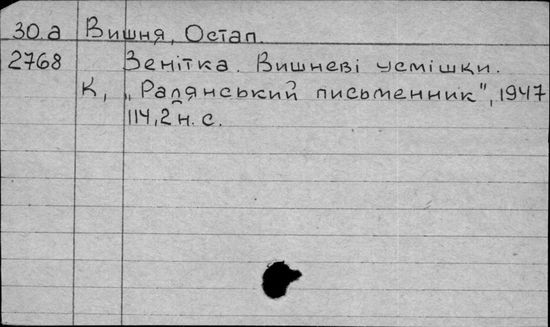 30.а Вишня, Остап.
2768 Зенітка. Вишневі усмішки.
К, „Радянський письменник", 1947
114,2 н. с.